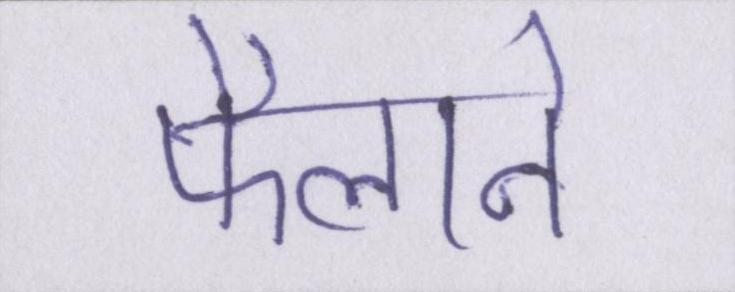 फैलाने